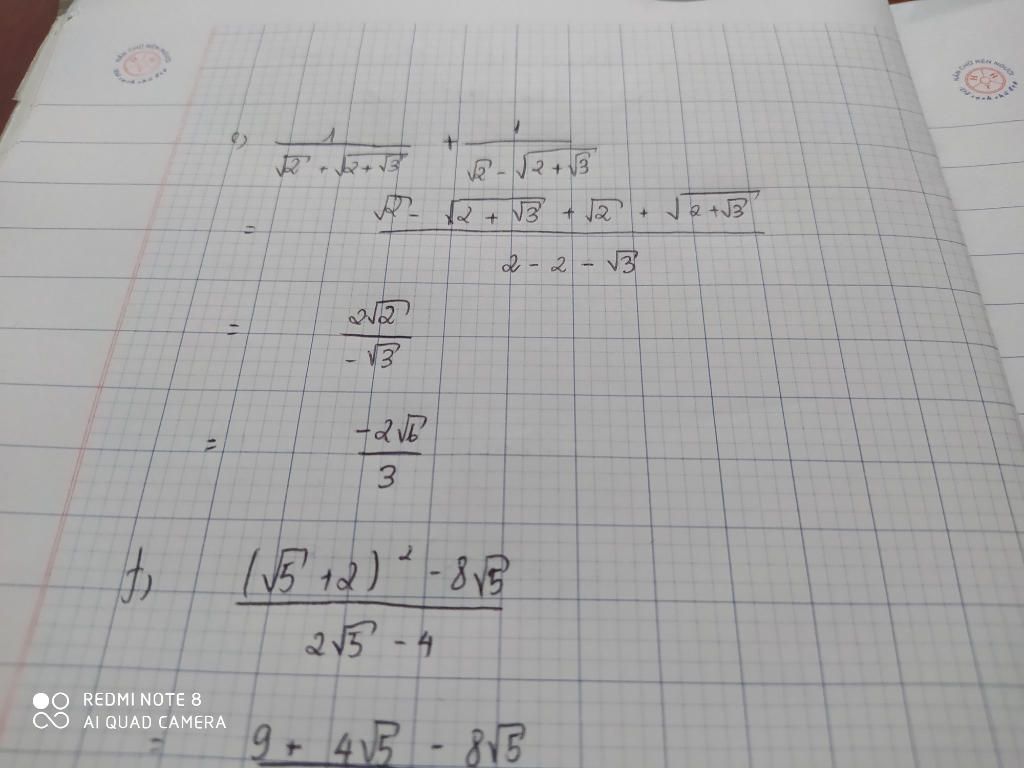 e) 1/(√2 + √(2+√3)) + 1/(√2 - √(2+√3))
= (√2 - √(2+√3) + √2 + √(2+√3))/(2 - 2 - √3)
= 2√2/(-√3)
= -2√6/3
f) ((√5 + 2)² - 8√5)/(2√5 - 4)
= 9 + 4√5 - 8√5
REDMI NOTE 8
AI QUAD CAMERA